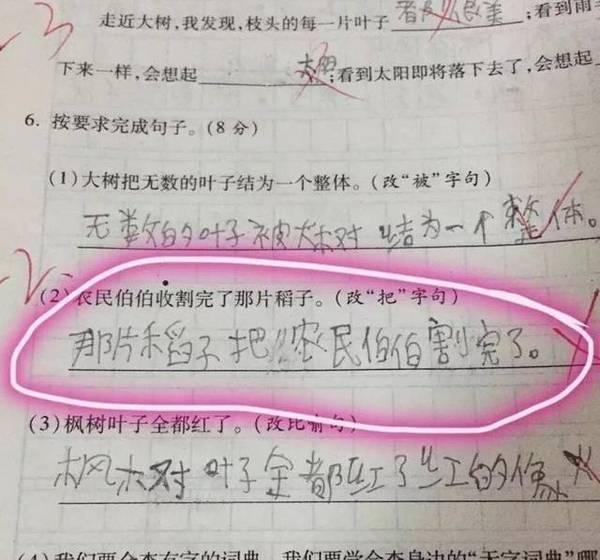 走近大树,我发现,枝头的每一片叶子 ;看到雨
下来一样,会想起 太阳;看到太阳即将落下去了,会想起
6. 按要求完成句子。(8 分)
(1)大树把无数的叶子结为一个整体。(改“被”字句)
无数的叶子被大树结为一个整体。
(2)农民伯伯收割完了那片稻子。(改“把”字句)
那片稻子把农民伯伯割完了。
(3)枫树叶子全都红了。(改比喻句)
枫树叶子全都红了红的像
(4)我们要会查有字的词典,我们要学会查身边的“无字词典”哪